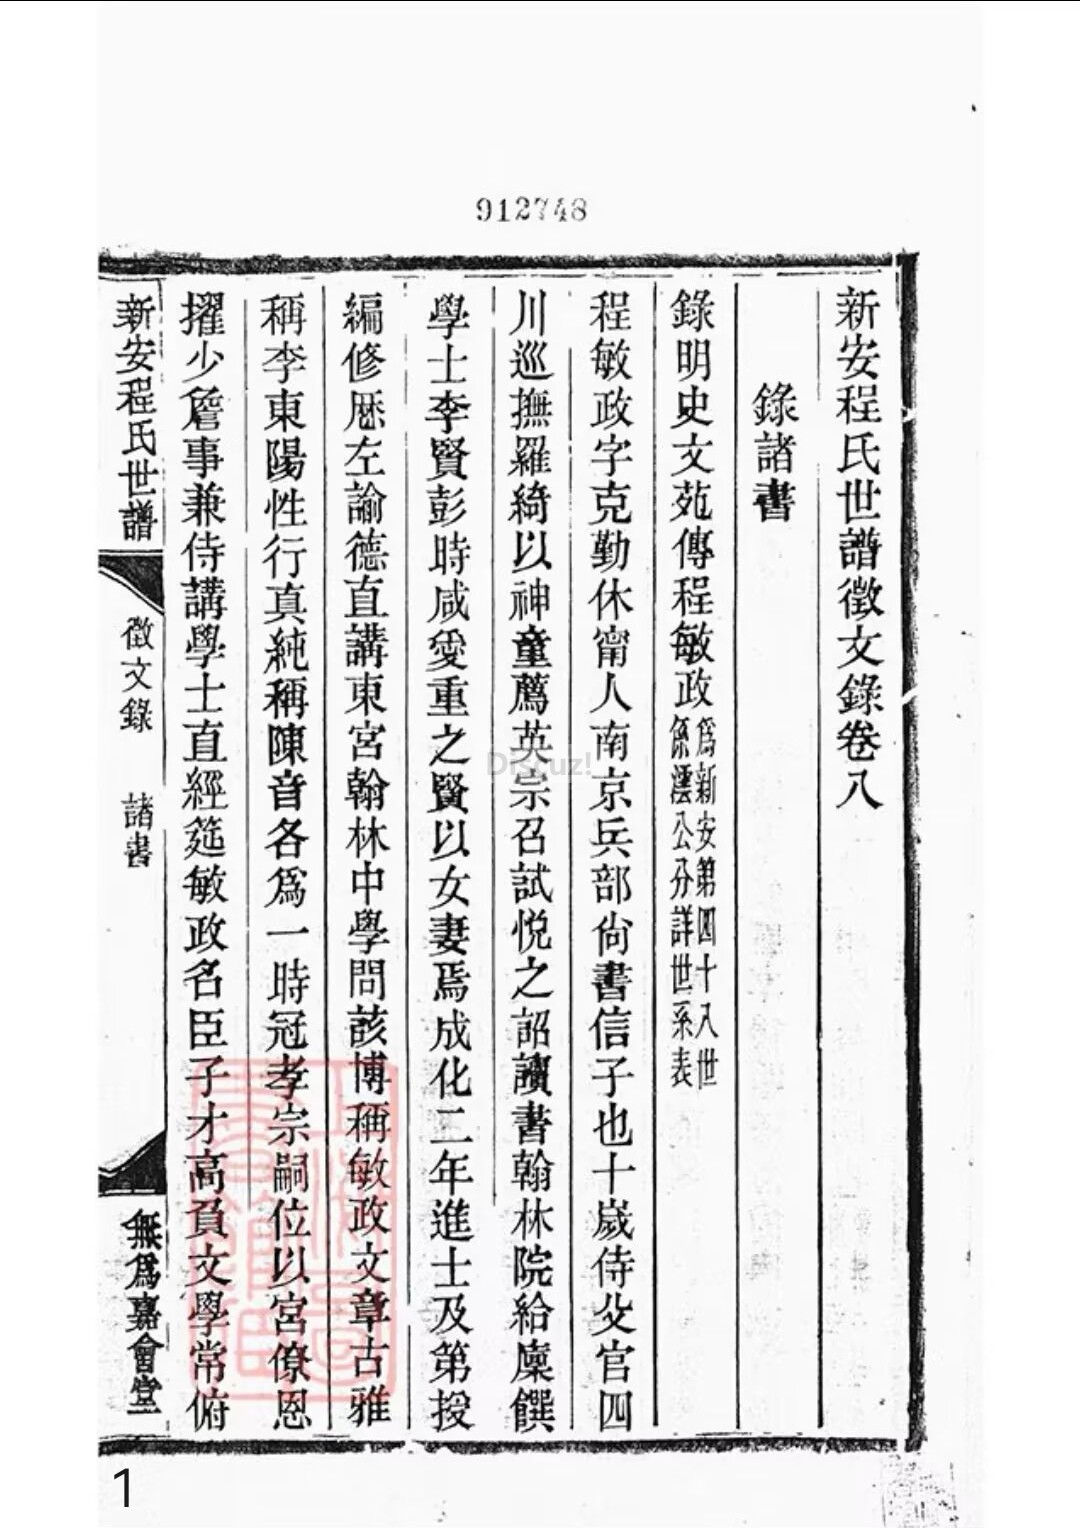 912748
新安程氏世譜徵文錄卷八
錄諸書
錄明史文苑傳程敏政為新安第四十八世
係澐公分詳世系表
程敏政字克勤休甯人南京兵部尙書信子也十歲侍父官四
川巡撫羅綺以神童薦英宗召試悅之詔讀書翰林院給廩饌
學士李賢彭時咸愛重之賢以女妻焉成化二年進士及第授
編修歷左諭德直講東宮翰林中學問該博稱敏政文章古雅
稱李東陽性行真純稱陳音各為一時冠孝宗嗣位以宮僚恩
擢少詹事兼侍講學士直經筵敏政名臣子才高負文學常俯
新安程氏世譜
徵文錄
諸書
無為嘉會堂
Discuz!
1